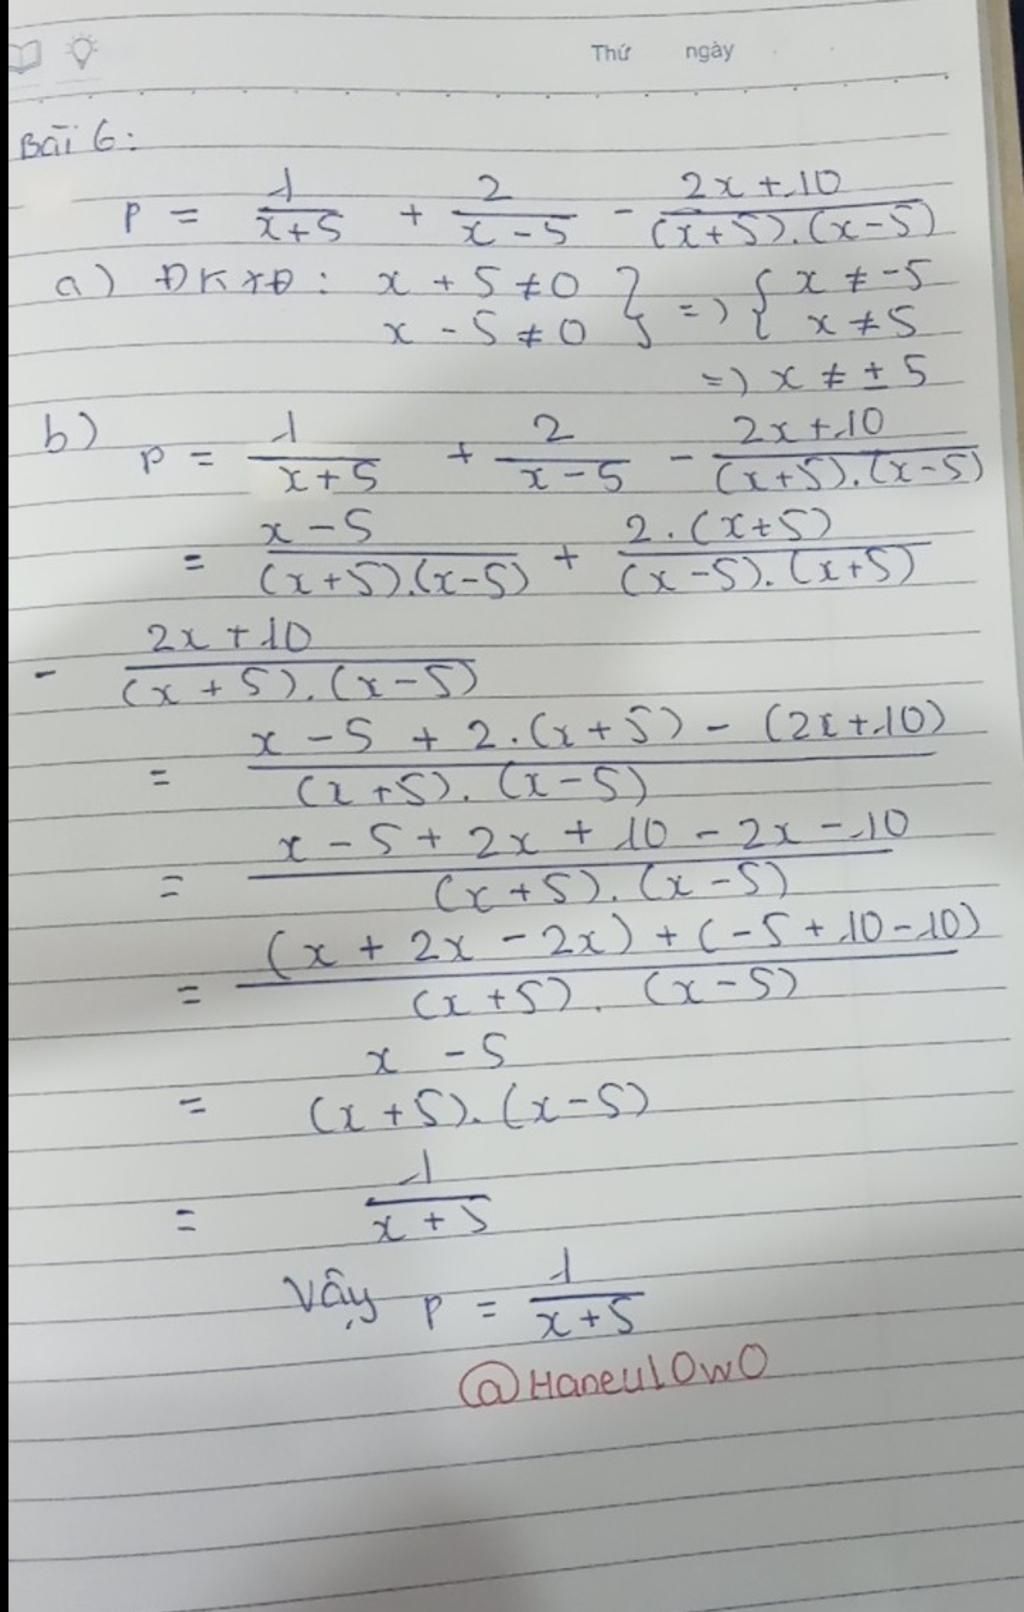 Thứ ngày
Bài 6:
P = 1/(x+5) + 2/(x-5) - (2x+10)/((x+5).(x-5))
a) ĐKXĐ: x + 5 ≠ 0 } => { x ≠ -5
x - 5 ≠ 0 x ≠ 5
=> x ≠ ± 5
b) P = 1/(x+5) + 2/(x-5) - (2x+10)/((x+5).(x-5))
= (x-5)/((x+5).(x-5)) + (2.(x+5))/((x-5).(x+5))
- (2x+10)/((x+5).(x-5))
= (x-5+2.(x+5)-(2x+10))/((x+5).(x-5))
= (x-5+2x+10-2x-10)/((x+5).(x-5))
= ((x+2x-2x)+(-5+10-10))/((x+5).(x-5))
= (x-5)/((x+5).(x-5))
= 1/(x+5)
Vậy P = 1/(x+5)
@Haneul0w0